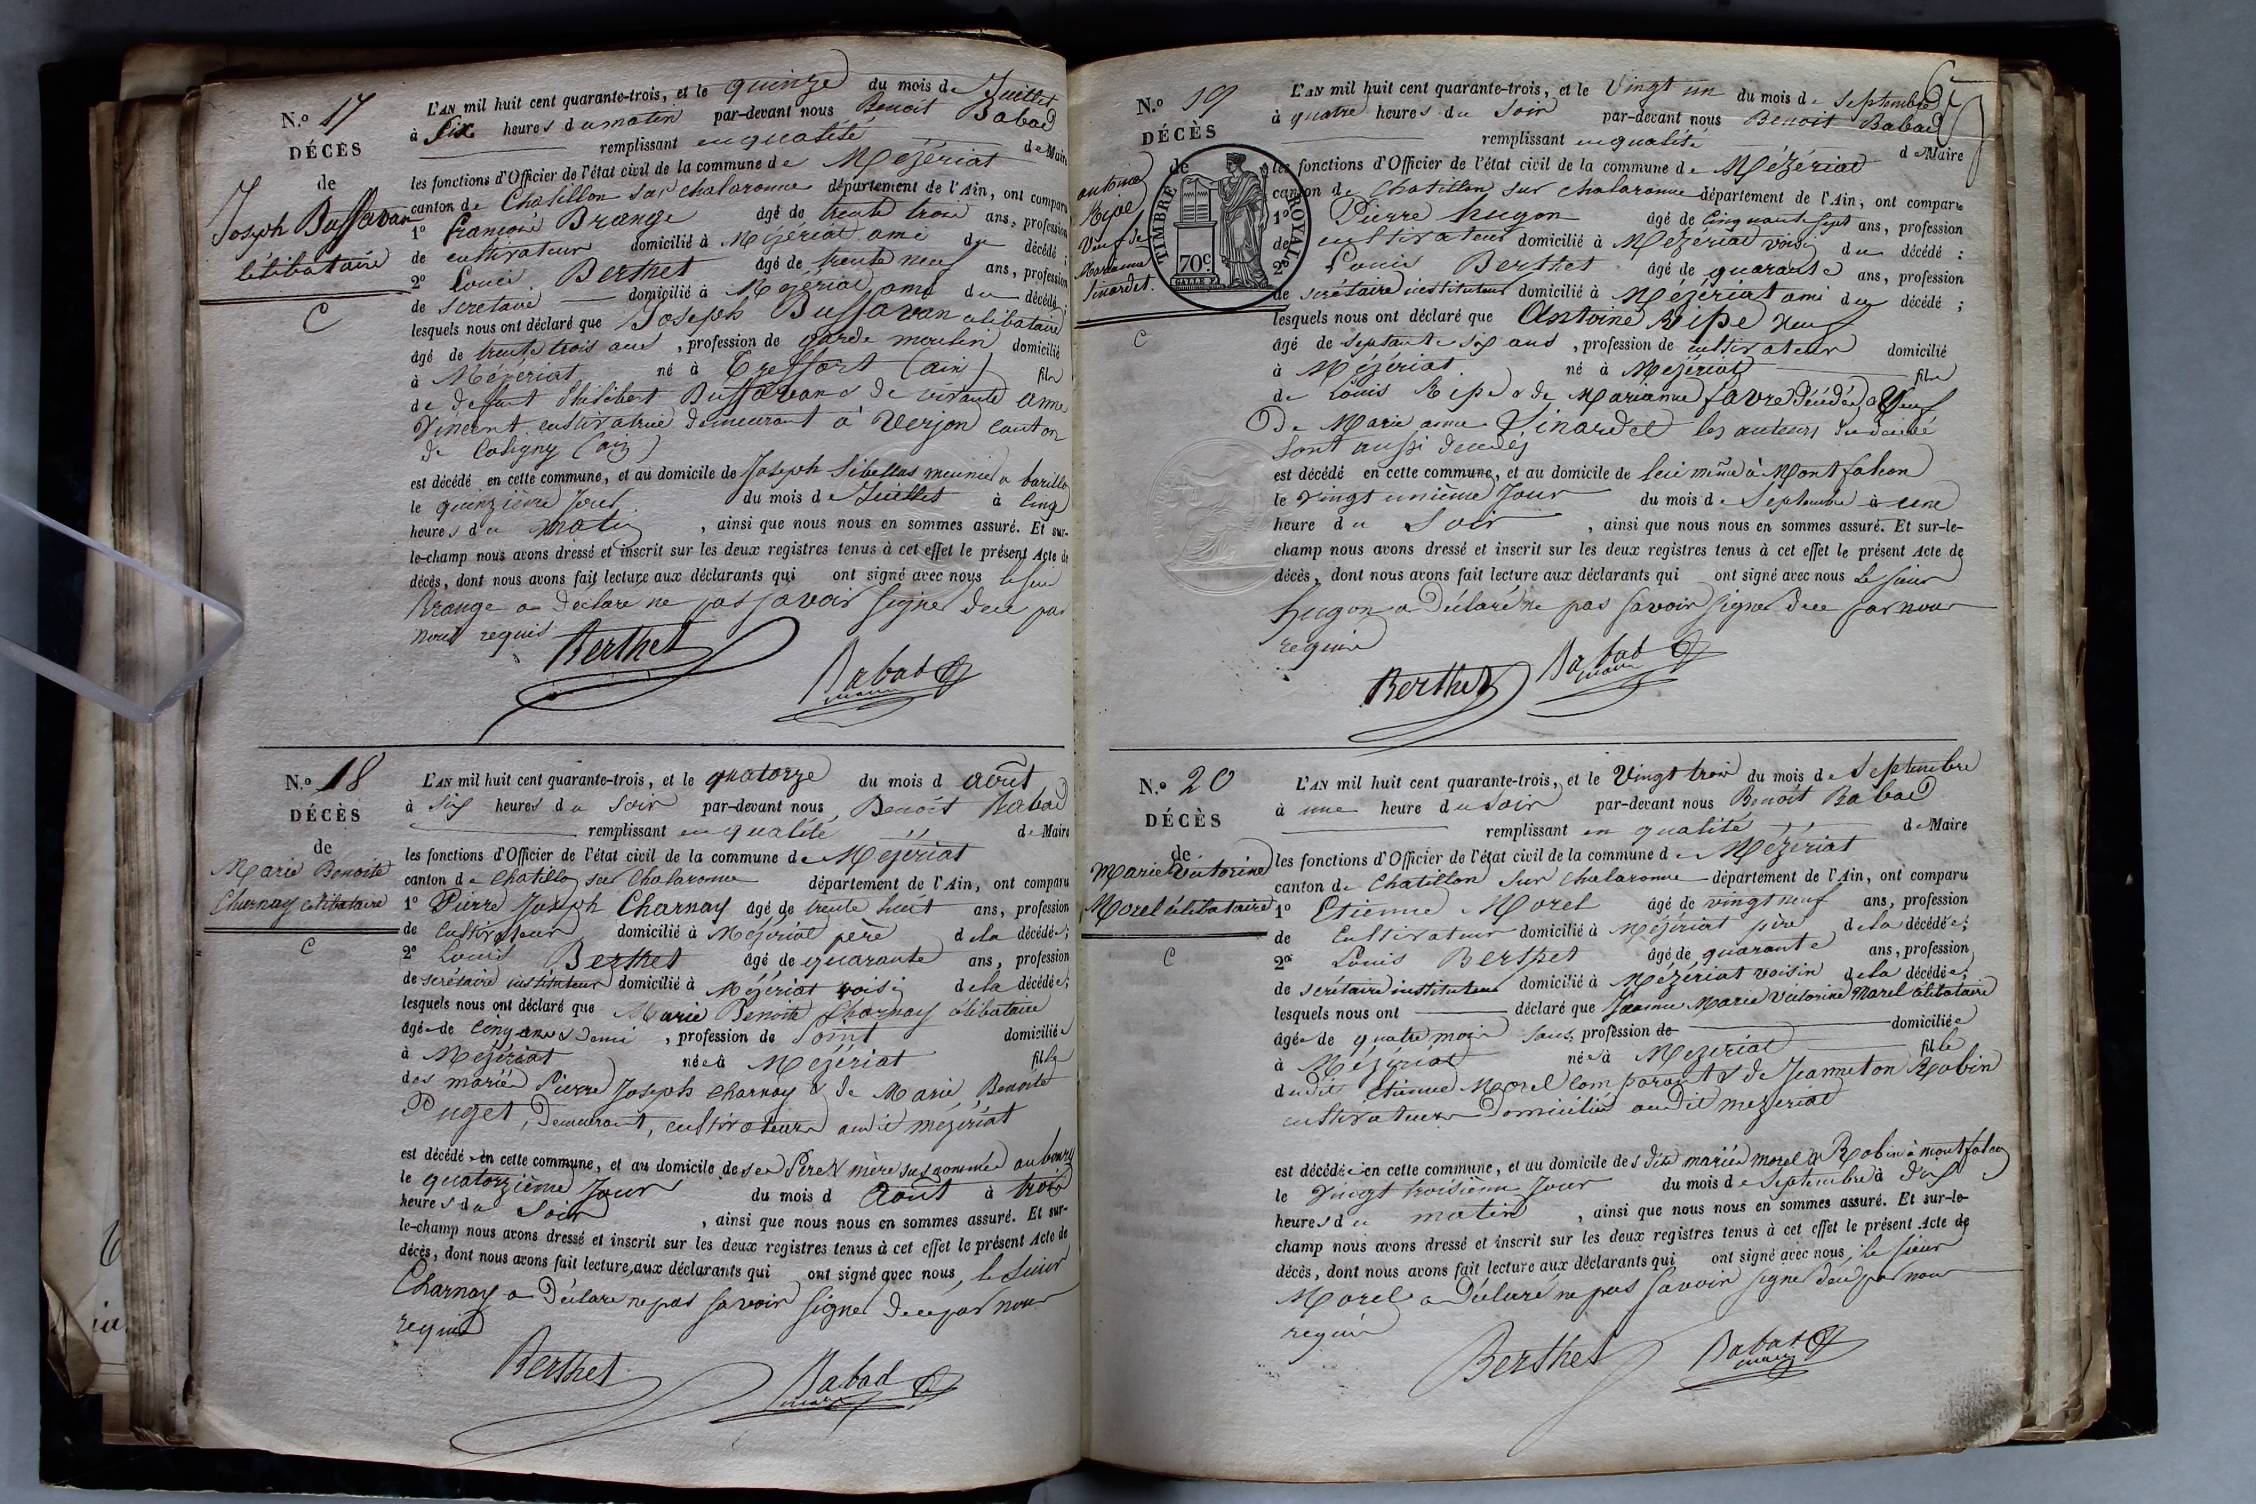 N.o 17
DÉCÈS
de
Joseph Buffavan
célibataire
C
L'AN mil huit cent quarante-trois, et le quinze du mois de Juillet
à six heures du matin par-devant nous Benoit Babad
remplissant en qualité de Maire
les fonctions d'Officier de l'état civil de la commune de Mézériat
canton de Chatillon sur chalaronne département de l'Ain, ont comparu
1o françois Brange âgé de trente trois ans, profession
de cultivateur domicilié à Mézériat ami du décédé ;
2o Louis Berthet âgé de trente neuf ans, profession
de secretaire domicilié à Mézériat ami du décédé ;
lesquels nous ont déclaré que Joseph Buffavan célibataire
âgé de trente trois ans , profession de garde moulin domicilié
à Mézériat né à Treffort (ain) fils
de defunt Philibert Buffavan & de vivante Anne
Vincent cultivatrice demeurant à Verjon canton
de Coligny (ain)
est décédé en cette commune, et au domicile de Joseph Sibellas meunier a
le quinzième jour du mois de Juillet à cinq
heures du matin , ainsi que nous nous en sommes assuré. Et sur-
le-champ nous avons dressé et inscrit sur les deux registres tenus à cet effet le présent Acte de
décès, dont nous avons fait lecture aux déclarants qui ont signé avec nous le sieur
Brange a déclaré ne pas savoir signer de ce par
nous requis
Berthet
Babad
maire
N.o 18
DÉCÈS
de
Marie Benoite
Charnay célibataire
C
L'AN mil huit cent quarante-trois, et le quatorze du mois d août
à six heures du soir par-devant nous Benoit Babad
remplissant en qualité de Maire
les fonctions d'Officier de l'état civil de la commune de Mézériat
canton de Chatillon sur Chalaronne département de l'Ain, ont comparu
1o Pierre Joseph Charnay âgé de trente huit ans, profession
de cultivateur domicilié à Mézériat père de la décédée ;
2o Louis Berthet âgé de quarante ans, profession
de secrétaire instituteur domicilié à Mézériat voisin de la décédée ;
lesquels nous ont déclaré que Marie Benoite Charnay célibataire
âgée de cinq ans & demi , profession de point domiciliée
à Mézériat née à Mézériat fille
des mariés Pierre Joseph Charnay & de Marie Benoite
Puget, Demeurant, cultivateurs audit mézériat
est décédé en cette commune, et au domicile de ses Père & mère susnommés au bourg
le quatorzième jour du mois d Août à trois
heures du soir , ainsi que nous nous en sommes assuré. Et sur-
le-champ nous avons dressé et inscrit sur les deux registres tenus à cet effet le présent Acte de
décès, dont nous avons fait lecture aux déclarants qui ont signé avec nous, le sieur
Charnay a déclaré ne pas savoir signer de ce par nous
requis
Berthet
Babad
maire
N.o 19
DÉCÈS
de
antoine
Ripe
Veuf de
Marianne
Vinardet.
C
TIMBRE ROYAL
70c.
L'AN mil huit cent quarante-trois, et le Vingt un du mois de septembre
à quatre heures du soir par-devant nous Benoit Babad
remplissant en qualité de Maire
les fonctions d'Officier de l'état civil de la commune de Mézériat
canton de Chatillon sur chalaronne département de l'Ain, ont comparu
1o Pierre hugon âgé de cinquante sept ans, profession
de cultivateur domicilié à Mézériat voisin du décédé ;
2o Louis Berthet âgé de quarante ans, profession
de secrétaire instituteur domicilié à Mézériat ami du décédé ;
lesquels nous ont déclaré que Antoine Ripe Veuf
âgé de septante six ans , profession de cultivateur domicilié
à Mézériat. né à Mézériat fils
de Louis Ripe & de Marianne favre décédés, Veuf
De Marie anne Vinardet les auteurs du decédé
sont aussi decedés
est décédé en cette commune, et au domicile de lui même à Montfalcon
le vingt unième jour du mois de Septembre à une
heure du soir , ainsi que nous nous en sommes assuré. Et sur-le-
champ nous avons dressé et inscrit sur les deux registres tenus à cet effet le présent Acte de
décès, dont nous avons fait lecture aux déclarants qui ont signé avec nous le sieur
hugon a déclaré ne pas savoir signer de ce par nous
requis
Berthet
Babad
maire
N.o 20
DÉCÈS
de
Marie Victorine
Morel célibataire
C
L'AN mil huit cent quarante-trois, et le Vingt trois du mois de Septembre
à une heure du soir par-devant nous Benoit Babad
remplissant en qualité de Maire
les fonctions d'Officier de l'état civil de la commune de Mézériat
canton de Chatillon sur chalaronne département de l'Ain, ont comparu
1o Etienne Morel âgé de vingt neuf ans, profession
de cultivateur domicilié à Mézériat père de la décédée ;
2o Louis Berthet âgé de quarante ans, profession
de secrétaire instituteur domicilié à Mézériat voisin de la décédée ;
lesquels nous ont déclaré que Jeanne Marie Victorine Morel célibataire
âgée de quatre mois sans, profession de domiciliée
à Mézériat née à Mezeriat fille
dudit Etienne Morel comparant & de Jeanneton Robin
cultivateurs domiciliés audit mezeriat
est décédée en cette commune, et au domicile des dits mariés morel & Robin à montfalcon
le vingt troisième jour du mois de Septembre à dix
heures du matin , ainsi que nous nous en sommes assuré. Et sur-le-
champ nous avons dressé et inscrit sur les deux registres tenus à cet effet le présent Acte de
décès, dont nous avons fait lecture aux déclarants qui ont signé avec nous, le sieur
Morel a déclaré ne pas savoir signer de ce par nous
requis
Berthet
Babad
maire